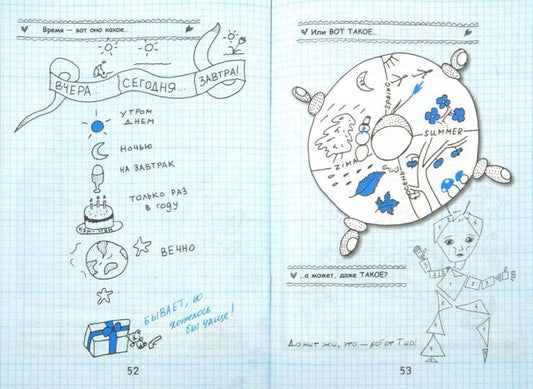 Время — вот оно какое...
ВЧЕРА... СЕГОДНЯ... ЗАВТРА!
УТРОМ
ДНЕМ
НОЧЬЮ
НА ЗАВТРАК
ТОЛЬКО РАЗ
В ГОДУ
НЯМ-НЯМ
ВЕЧНО
БЫВАЕТ, но
хотелось
бы чаще!
52
Или ВОТ ТАКОЕ...
SUMMER
ZIMA
...а может, даже ТАКОЕ?
Да нет же, это — робот Тио!
53